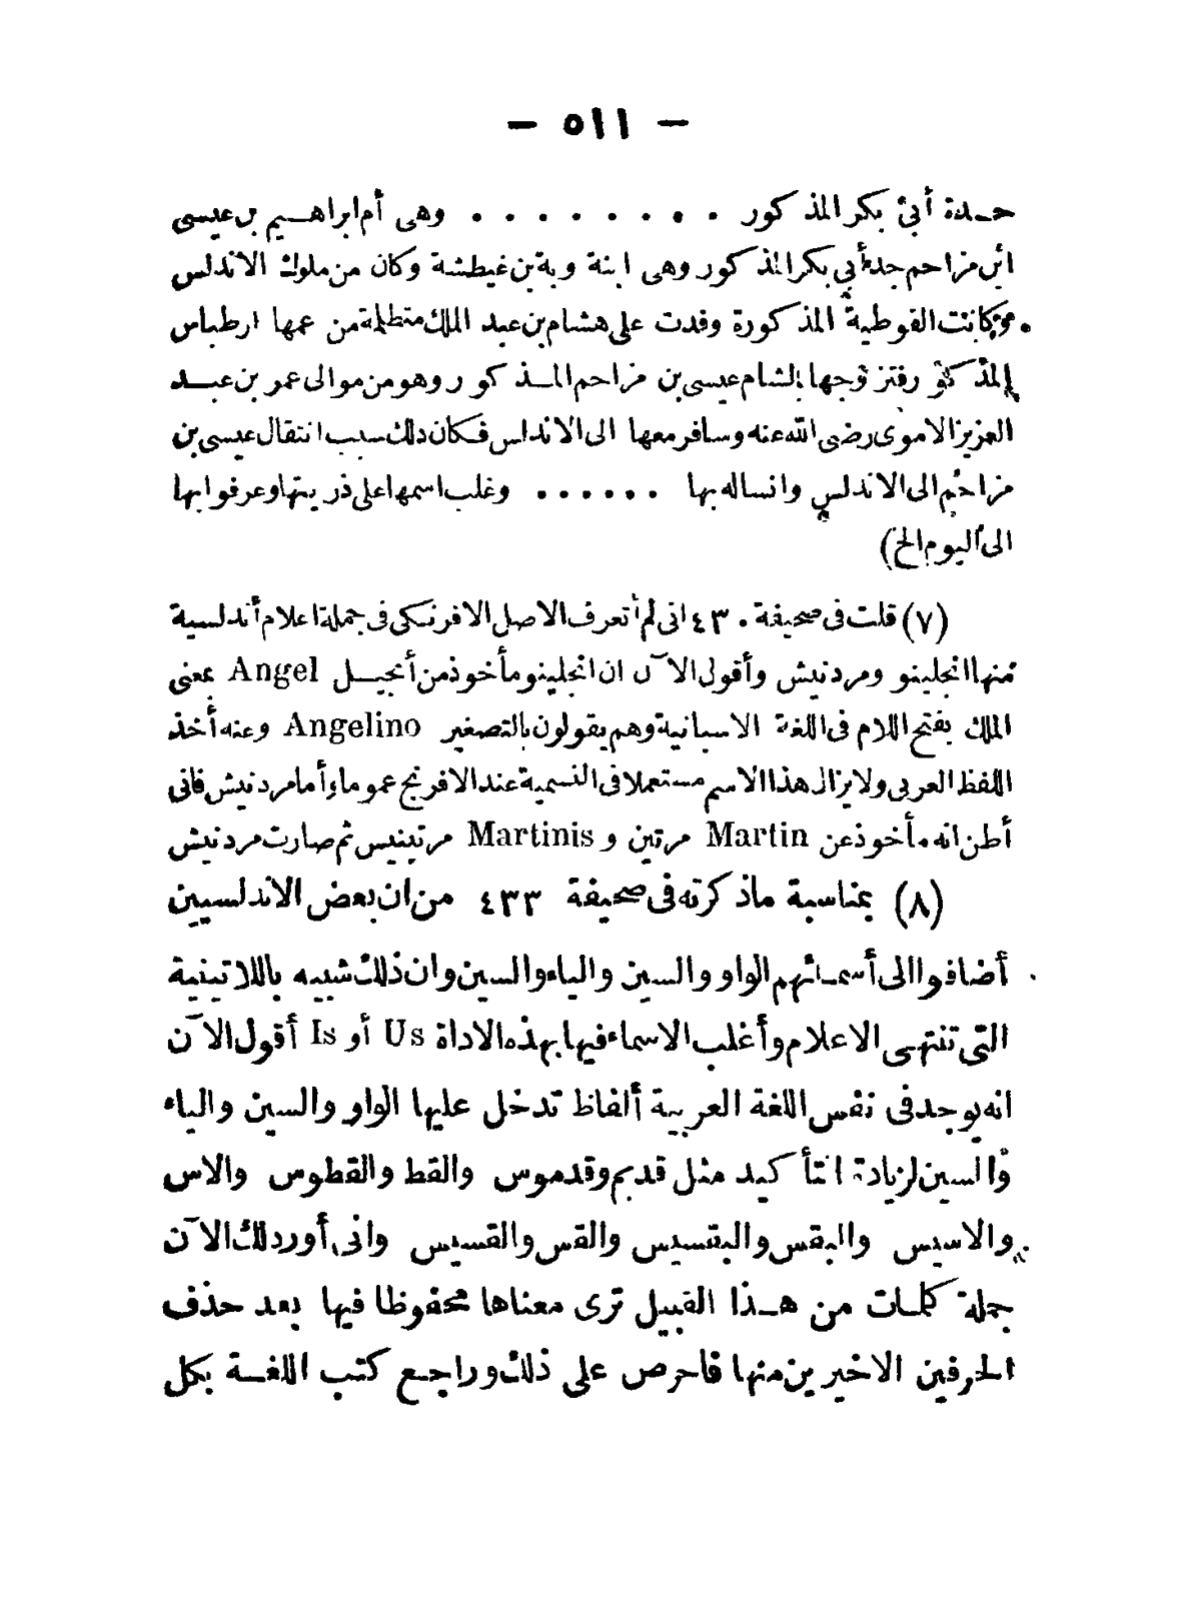 — ٥١١ —
جدة أبي بكر المذكور . . . . . . . . وهى أم ابراهيم بن عيسى
ابن مزاحم جد أبي بكر المذكور وهى ابنة وبة بن غيطشة وكان من ملوك الاندلس
وكانت القوطية المذكورة وفدت على هشام بن عبد الملك متظلمة من عمها ارطباس
المذكور فتزوجها بالشام عيسى بن مزاحم المذكور وهو من موالى عمر بن عبد
العزيز الاموى رضى الله عنه وسافر معها الى الاندلس فكان ذلك سبب انتقال عيسى بن
مزاحم الى الاندلس وانساله بها . . . . . . وغلب اسمها على ذريتها وعرفوا بها
الى اليوم الخ)
(٧) قلت فى صحيفة ٤٣٠ انى لم أتعرف الاصل الافرنكى فى جملة اعلام أندلسية
منها انجلينو ومردنيش وأقول الآن ان انجلينو مأخوذ من أنجيل Angel بمعنى
الملك بفتح اللام فى اللغة الاسبانية وهم يقولون بالتصغير Angelino وعنه أخذ
اللفظ العربى ولا يزال هذا الاسم مستعملا فى التسمية عند الافرنج عموما وأما مردنيش فانى
أظن انه مأخوذ عن Martin مرتين و Martinis مرتينيس ثم صارت مردنيش
(٨) بمناسبة ماذكرته فى صحيفة ٤٣٣ من ان بعض الاندلسيين
أضافوا الى أسمائهم الواو والسين والياء والسين وان ذلك شبيه باللاتينية
التى تنتهى الاعلام وأغلب الاسماء فيها بهذه الاداة Us أو Is أقول الآن
انه يوجد فى نفس اللغة العربية ألفاظ تدخل عليها الواو والسين والياء
والسين لزيادة التأكيد مثل قديم وقدموس والقط والقطوس والاس
والاسيس والبقس والبقسيس والقس والقسيس وانى أورد لك الآن
جملة كلمات من هذا القبيل ترى معناها محفوظا فيها بعد حذف
الحرفين الاخيرين منها فاحرص على ذلك وراجع كتب اللغة بكل